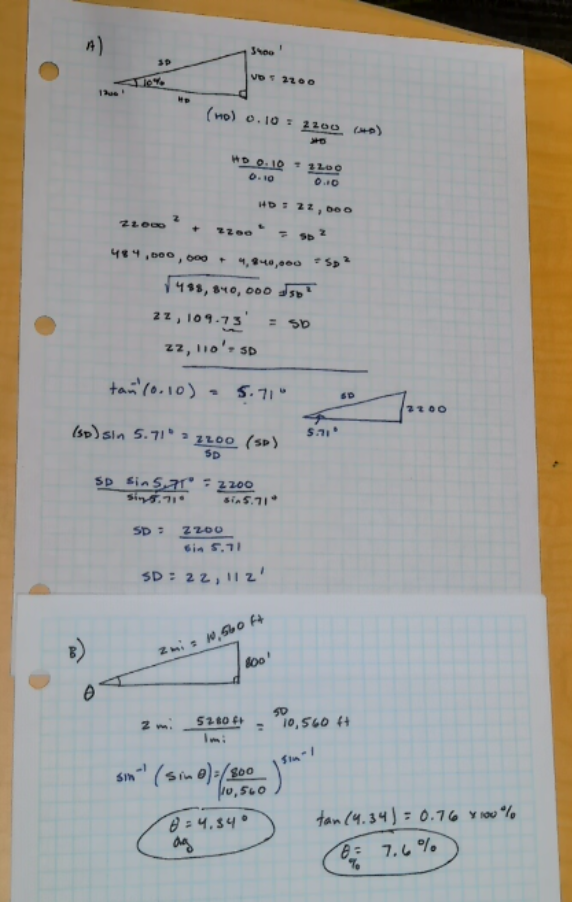 A)
SD
3400'
10%
VD = 2200
1200'
HD
(HD) 0.10 = 2200/HD (HD)
HD 0.10/0.10 = 2200/0.10
HD = 22,000
22000² + 2200² = SD²
484,000,000 + 4,840,000 = SD²
√488,840,000 = √SD²
22,109.73' = SD
22,110' = SD
tan⁻¹(0.10) = 5.71°
SD
2200
5.71°
(SD) sin 5.71° = 2200/SD (SD)
SD sin 5.71°/sin 5.71° = 2200/sin 5.71°
SD = 2200/sin 5.71
SD = 22,112'
B)
2 mi = 10,560 ft
800'
θ
2 mi 5280 ft/1 mi = SD 10,560 ft
sin⁻¹ (sin θ) = (800/10,560) sin⁻¹
θ = 4.34°
deg
tan(4.34) = 0.76 × 100%
θ = 7.6%
%